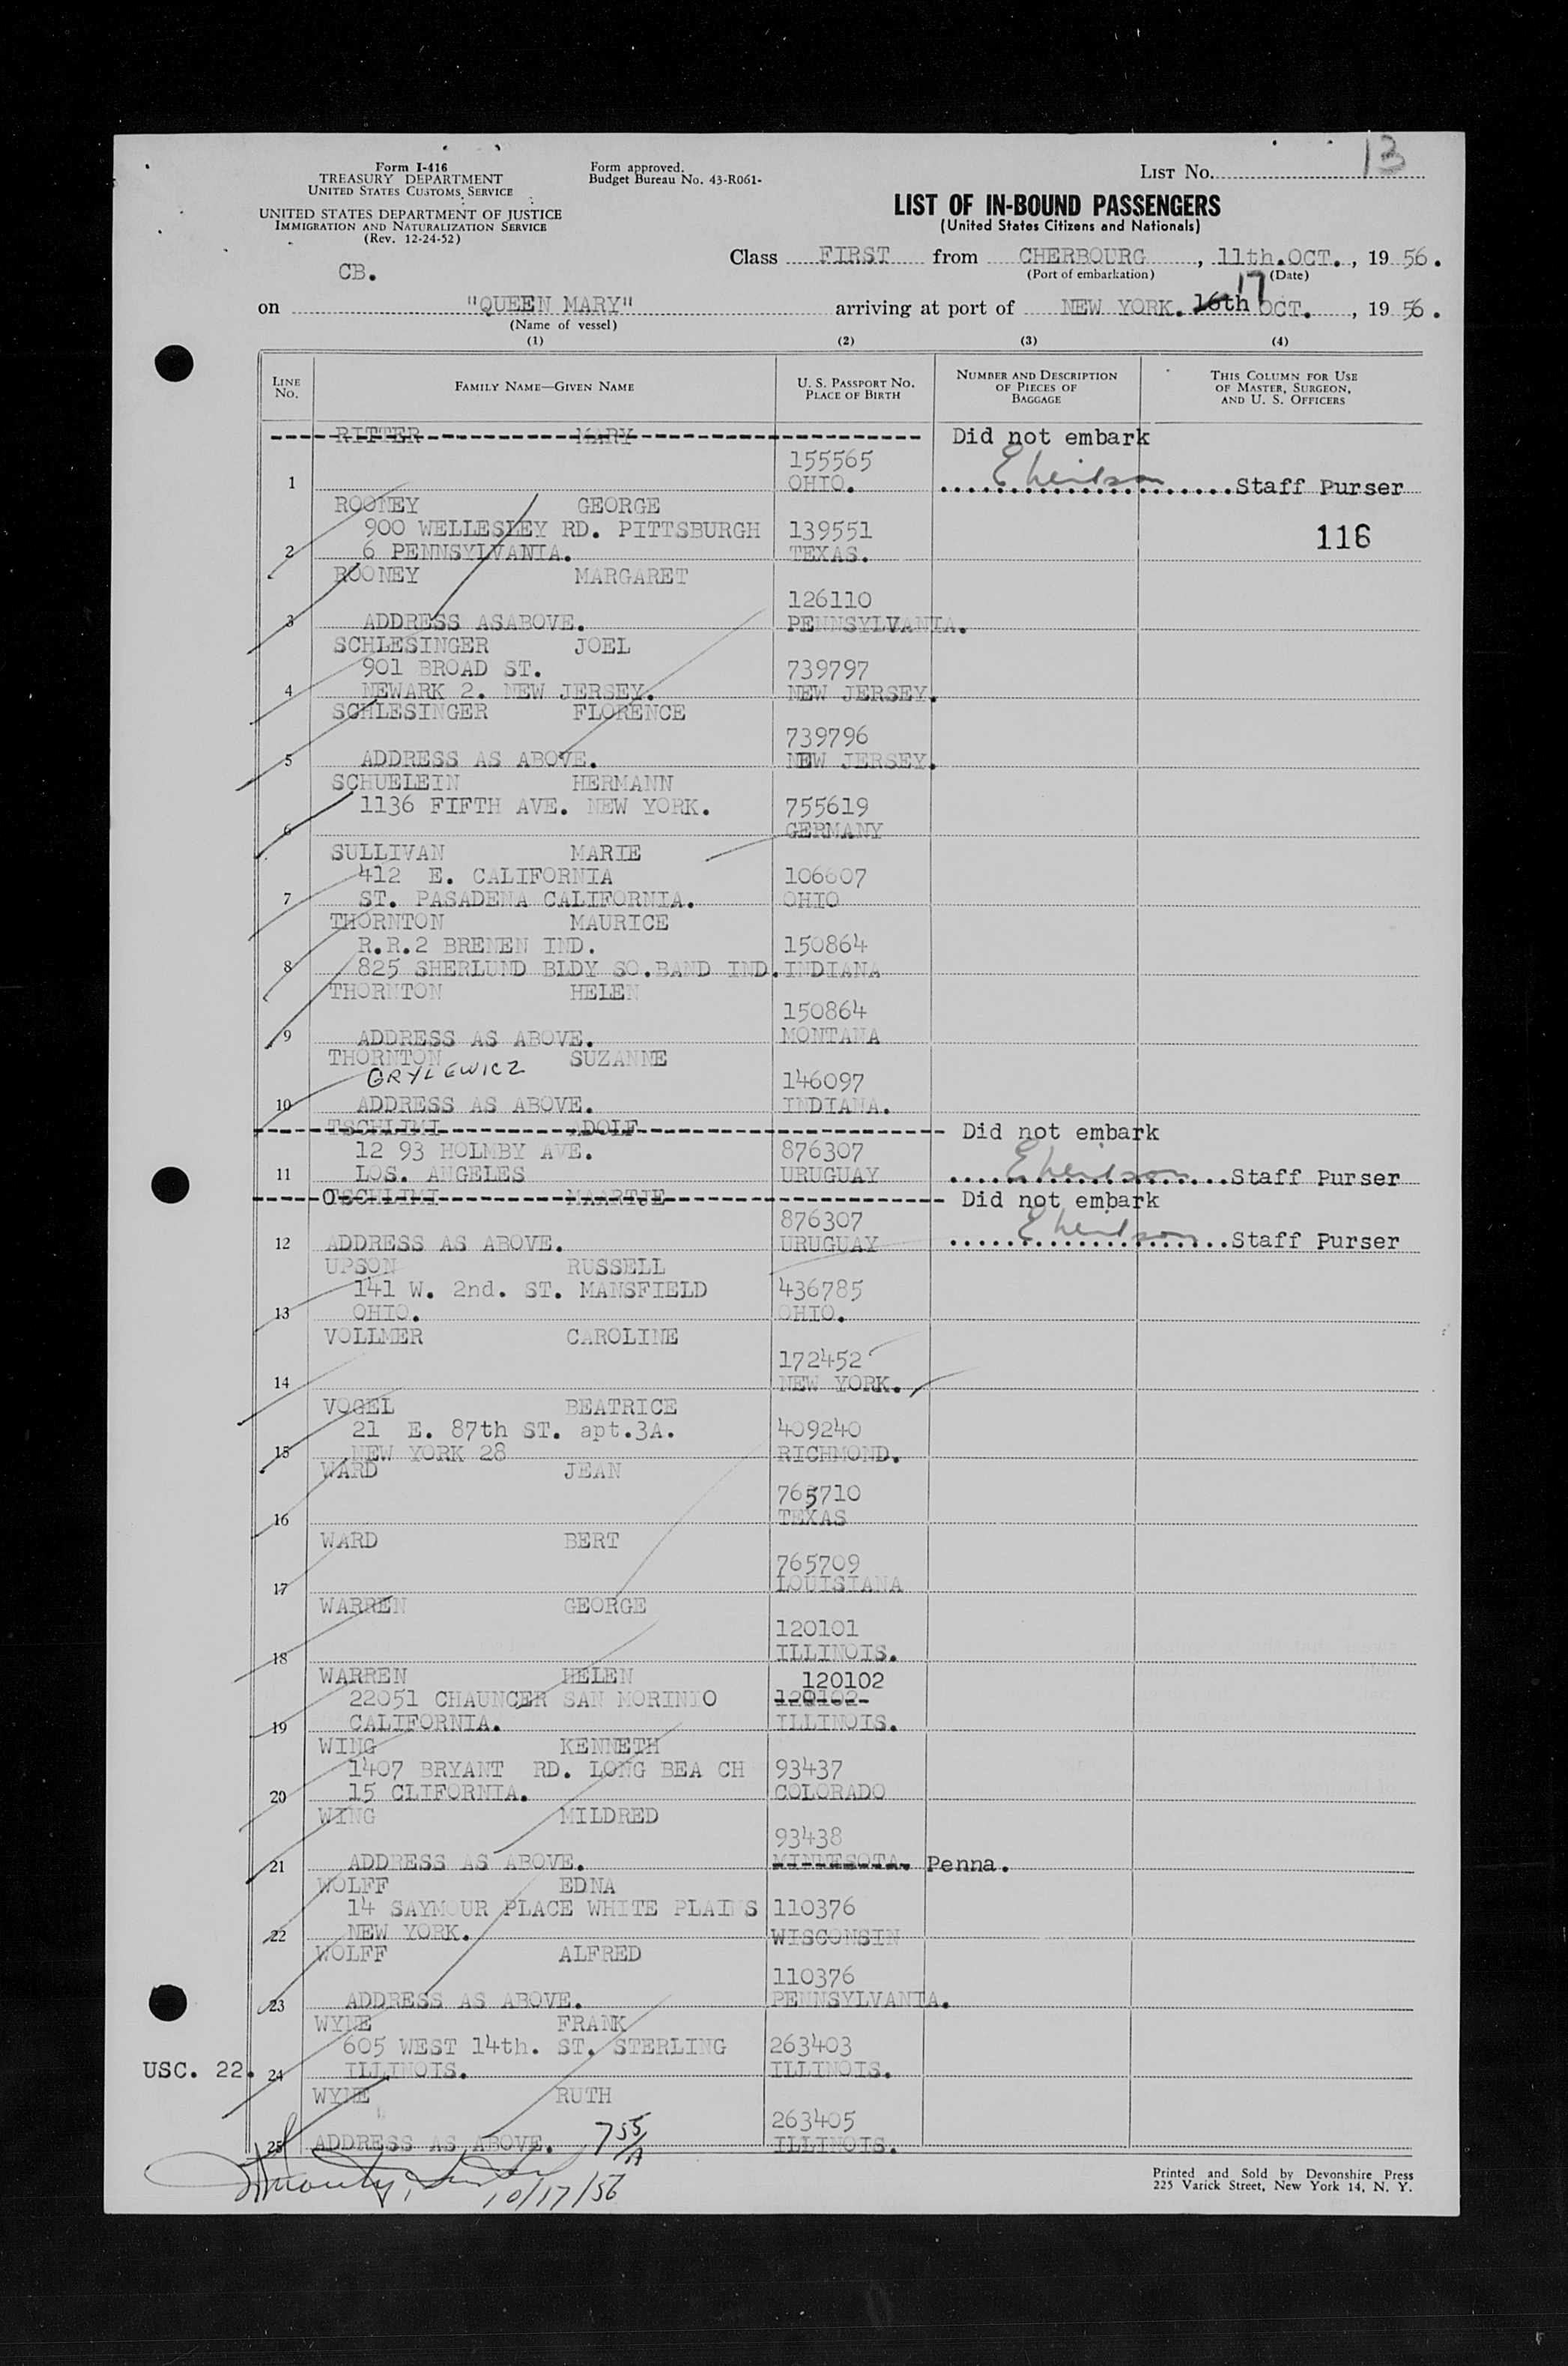 13
Form I-416
TREASURY DEPARTMENT
UNITED STATES CUSTOMS SERVICE
UNITED STATES DEPARTMENT OF JUSTICE
IMMIGRATION AND NATURALIZATION SERVICE
(Rev. 12-24-52)
Form approved.
Budget Bureau No. 43-R061-
LIST NO.
LIST OF IN-BOUND PASSENGERS
(United States Citizens and Nationals)
CB.
Class FIRST from CHERBOURG, 11th.OCT., 19 56.
(Port of embarkation) (Date)
17
on "QUEEN MARY" arriving at port of NEW YORK. 16th OCT., 19 56.
(Name of vessel)
(1) (2) (3) (4)
LINE NO.
FAMILY NAME—GIVEN NAME
U. S. PASSPORT NO.
PLACE OF BIRTH
NUMBER AND DESCRIPTION
OF PIECES OF
BAGGAGE
THIS COLUMN FOR USE
OF MASTER, SURGEON,
AND U. S. OFFICERS
RITTER MARY Did not embark
155565
1 OHIO. Staff Purser
ROONEY GEORGE
900 WELLESLEY RD. PITTSBURGH 139551 116
2 6 PENNSYLVANIA. TEXAS.
ROONEY MARGARET
126110
3 ADDRESS ASABOVE. PENNSYLVANIA.
SCHLESINGER JOEL
901 BROAD ST. 739797
4 NEWARK 2. NEW JERSEY. NEW JERSEY.
SCHLESINGER FLORENCE
739796
5 ADDRESS AS ABOVE. NEW JERSEY.
SCHUELEIN HERMANN
1136 FIFTH AVE. NEW YORK. 755619
6 GERMANY
SULLIVAN MARIE
412 E. CALIFORNIA 106607
7 ST. PASADENA CALIFORNIA. OHIO
THORNTON MAURICE
R.R.2 BREMEN IND. 150864
8 825 SHERLUND BLDY SO.BAND IND. INDIANA
THORNTON HELEN
150864
9 ADDRESS AS ABOVE. MONTANA
THORNTON SUZANNE
GRYLEWICZ 146097
10 ADDRESS AS ABOVE. INDIANA.
TSCHLIMI ADOLF Did not embark
12 93 HOLMBY AVE. 876307
11 LOS. ANGELES URUGUAY Staff Purser
OTSCHLIMI MAARTJE Did not embark
876307
12 ADDRESS AS ABOVE. URUGUAY Staff Purser
UPSON RUSSELL
141 W. 2nd. ST. MANSFIELD 436785
13 OHIO. OHIO.
VOLLMER CAROLINE
172452
14 NEW YORK.
VOGEL BEATRICE
21 E. 87th ST. apt.3A. 409240
15 NEW YORK 28 RICHMOND.
WARD JEAN
765710
16 TEXAS
WARD BERT
765709
17 LOUISIANA
WARREN GEORGE
120101
18 ILLINOIS.
WARREN HELEN 120102
22051 CHAUNCER SAN MORINIO 120102
19 CALIFORNIA. ILLINOIS.
WING KENNETH
1407 BRYANT RD. LONG BEA CH 93437
20 15 CLIFORNIA. COLORADO
WING MILDRED
93438
21 ADDRESS AS ABOVE. MINNESOTA. Penna.
WOLFF EDNA
14 SAYMOUR PLACE WHITE PLAINS 110376
22 NEW YORK. WISCONSIN
WOLFF ALFRED
110376
23 ADDRESS AS ABOVE. PENNSYLVANIA.
WYNE FRANK
605 WEST 14th. ST. STERLING 263403
USC. 22. 24 ILLINOIS. ILLINOIS.
WYNE RUTH
263405
25 ADDRESS AS ABOVE. ILLINOIS.
755/A
10/17/56
Printed and Sold by Devonshire Press
225 Varick Street, New York 14, N. Y.